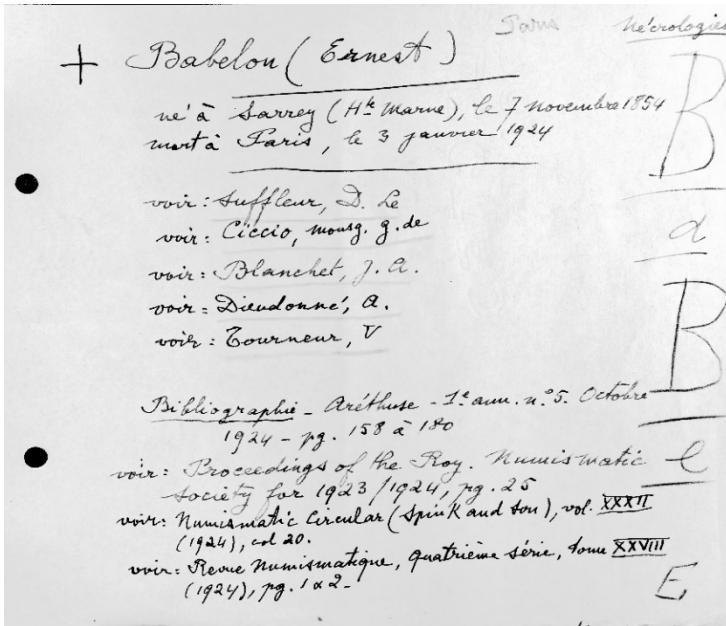 Paris Nécrologies
+ Babelon (Ernest)
né à Sarrey (Hte Marne), le 7 novembre 1854
mort à Paris, le 3 janvier 1924
voir: Suffleur, D. Le
voir: Ciccio, monsg. g. de
voir: Blanchet, J. A.
voir: Dieudonné, A.
voir: Tourneur, V
Bibliographie - Aréthuse - 1e ann. n.º 5. Octobre
1924 - pg. 158 à 180
voir: Proceedings of the Roy. Numismatic
Society for 1923/1924, pg. 25
voir: Numismatic Circular (Spink and Son), vol. XXXII
(1924), col 20.
voir: Revue Numismatique, quatrième série, tome XXVIII
(1924), pg. 1 à 2.
B
a
B
e
E